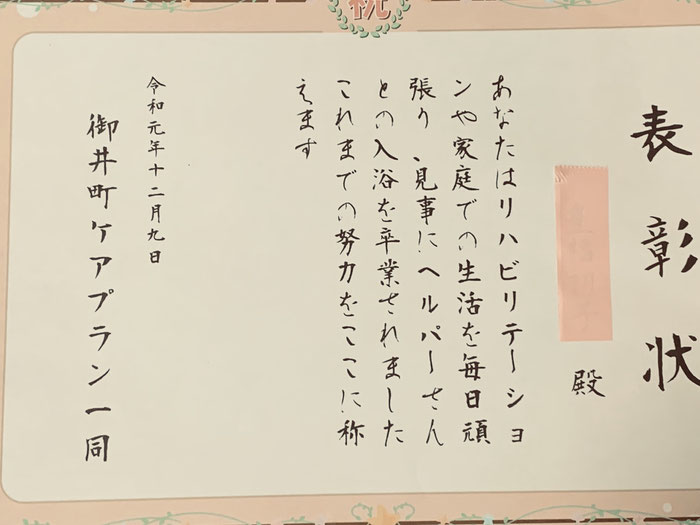 祝
表彰状
殿
あなたはリハビリテーショ
ンや家庭での生活を毎日頑
張り、見事にヘルパーさん
との入浴を卒業されました
これまでの努力をここに称
えます
令和元年十二月九日
御井町ケアプラン一同